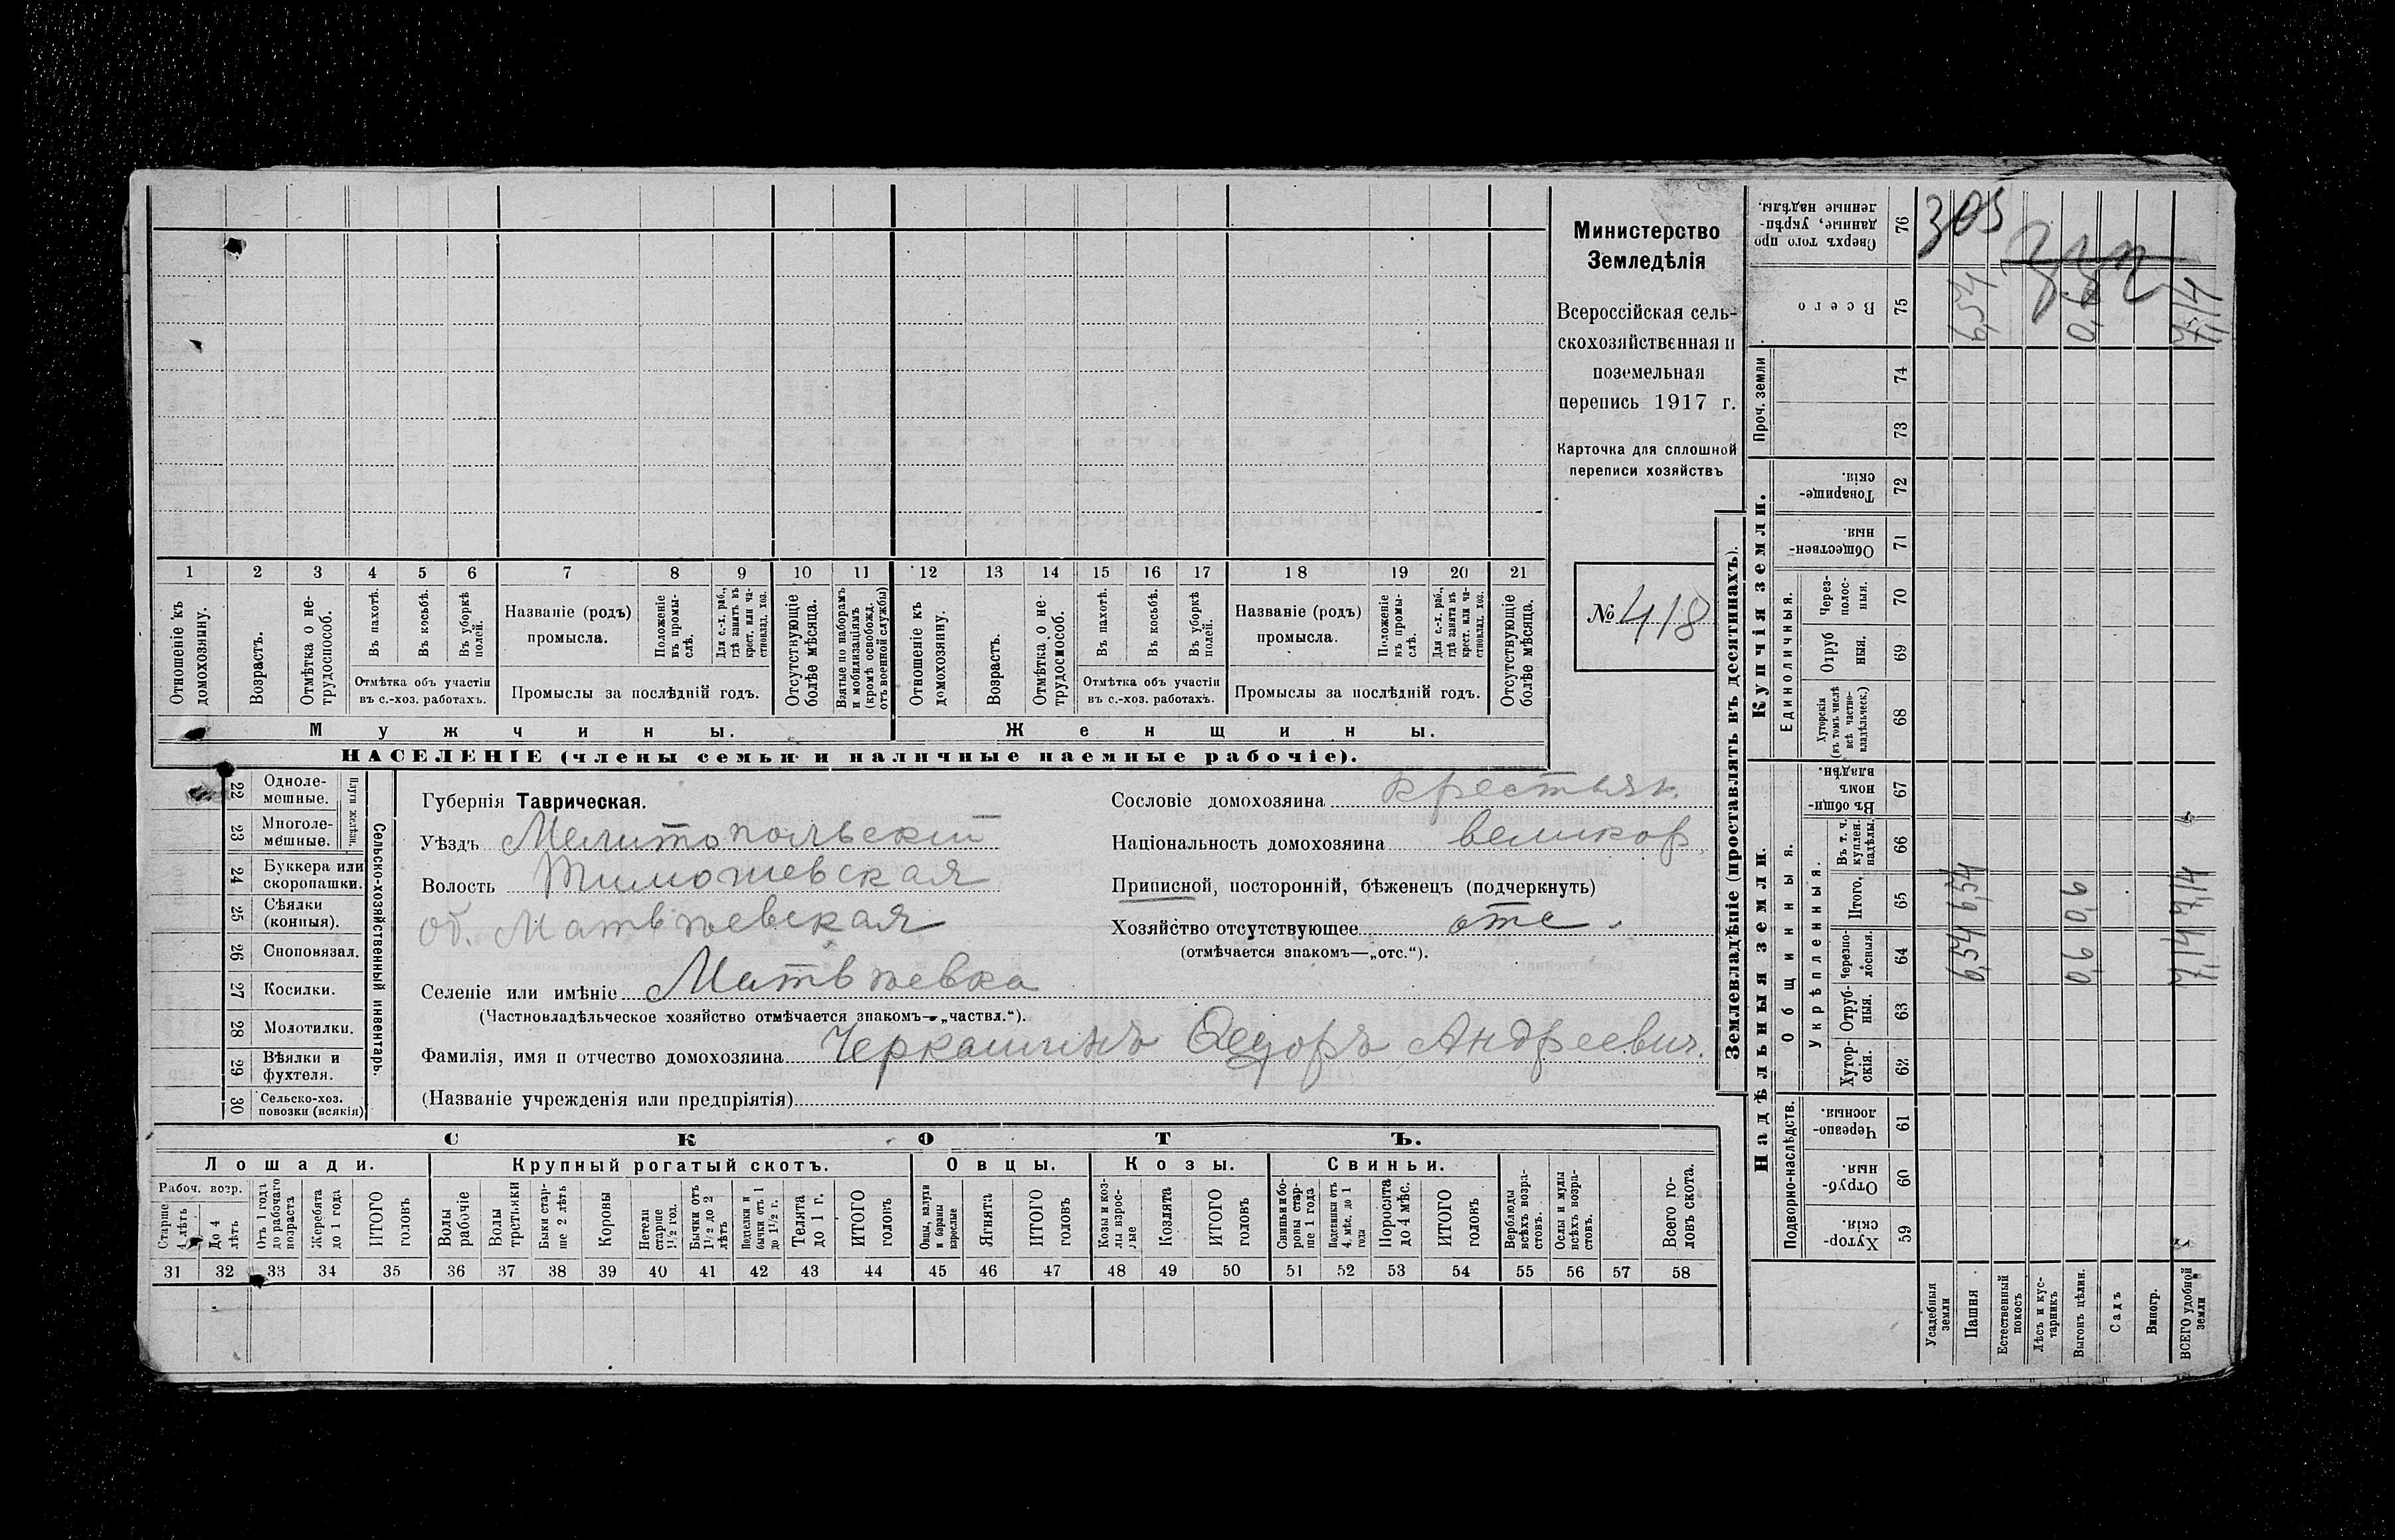 1 2 3 4 5 6 7 8 9 10 11 12 13 14 15 16 17 18 19 20 21
Отношеніе къ домохозяину.
Возрастъ.
Отмѣтка о нетрудоспособ.
Въ пахотѣ.
Въ косьбѣ.
Въ уборкѣ полей.
Отмѣтка объ участіи
въ с.-хоз. работахъ.
Названіе (родъ)
промысла.
Положеніе въ промыслѣ.
Для с.-х. раб., гдѣ занятъ въ крест. или частновлад. хоз.
Промыслы за послѣдній годъ.
Отсутствующіе болѣе мѣсяца.
Взятые по наборамъ и мобилизаціямъ (кромѣ освобожд. отъ военной службы)
Отношеніе къ домохозяину.
Возрастъ.
Отмѣтка о нетрудоспособ.
Въ пахотѣ.
Въ косьбѣ.
Въ уборкѣ полей.
Отмѣтка объ участіи
въ с.-хоз. работахъ.
Названіе (родъ)
промысла.
Положеніе въ промыслѣ.
Для с.-х. раб., гдѣ занята въ крест. или частновлад. хоз.
Промыслы за послѣдній годъ.
Отсутствующіе болѣе мѣсяца.
Мужчины.
Женщины.
НАСЕЛЕНІЕ (члены семьи и наличные наемные рабочіе).
Министерство
Земледѣлія
Всероссійская сель-
скохозяйственная и
поземельная
перепись 1917 г.
Карточка для сплошной
переписи хозяйствъ
№ 418
22 Одноле-
мешные.
23 Многоле-
мешные.
Плуги желѣзн.
24 Буккера или
скоропашки.
25 Сѣялки
(конныя).
26 Сноповязал.
27 Косилки.
28 Молотилки.
29 Вѣялки и
фухтеля.
30 Сельско-хоз.
повозки (всякія)
Сельско-хозяйственный инвентарь.
Губернія Таврическая.
Уѣздъ Мелитопольскій
Волость Тимошевская
об. Матвѣевская
Селеніе или имѣніе Матвѣевка
(Частновладѣльческое хозяйство отмѣчается знакомъ—„частвл.“).
Фамилія, имя и отчество домохозяина Черкашинъ Ѳедоръ Андреевич.
(Названіе учрежденія или предпріятія)
Сословіе домохозяина крестьян.
Національность домохозяина великор.
Приписной, посторонній, бѣженецъ (подчеркнуть)
Хозяйство отсутствующее отс.
(отмѣчается знакомъ—„отс.“).
СКОТЪ.
Лошади.
Крупный рогатый скотъ.
Овцы.
Козы.
Свиньи.
Рабоч. возр.
Старше 4 лѣтъ
До 4 лѣтъ
Отъ 1 года до рабочаго возраста
Жеребята до 1 года
ИТОГО головъ
Волы рабочіе
Волы третьяки
Быки старше 2 лѣтъ
Коровы
Нетели старше 1½ год.
Бычки отъ 1½ до 2 лѣтъ
Подтелки и бычки отъ 1 до 1½ г.
Телята до 1 г.
ИТОГО головъ
Овцы, валухи и бараны взрослые
Ягнята
ИТОГО головъ
Козы и козлы взрослые
Козлята
ИТОГО головъ
Свиньи и бороны старше 1 года
Подсвинки отъ 4 мѣс. до 1 года
Поросята до 4 мѣс.
ИТОГО головъ
Верблюды всѣхъ возрастовъ.
Ослы и мулы всѣхъ возрастовъ.
Всего головъ скота.
31 32 33 34 35 36 37 38 39 40 41 42 43 44 45 46 47 48 49 50 51 52 53 54 55 56 57 58
Землевладѣніе (проставлять въ десятинахъ).
Надѣльныя земли.
Купчія земли.
Проч. земли
Подворно-наслѣдств.
Общинныя.
Укрѣпленныя.
Единоличныя.
Хуторскія. 59
Отрубныя. 60
Черезполосныя. 61
Хуторскія. 62
Отрубныя. 63
Черезполосныя. 64
Итого. 65
Въ т. ч. куплен. надѣлы. 66
Въ общинномъ владѣн. 67
Хуторскія (въ томъ числѣ всѣ частновладѣльческ.) 68
Отрубныя. 69
Черезполосныя. 70
Общественныя. 71
Товарищескія. 72
73
74
Всего 75
Сверхъ того проданные, укрѣпленные надѣлы. 76
Усадебныя земли
Пашня 6,54 6,54 6,54
Естественный покосъ
Лѣсъ и кустарникъ
Выгонъ цѣлин. 0,6 0,6 0,6
Садъ
Виногр.
ВСЕГО удобной земли 7,14 7,14 7,14
305